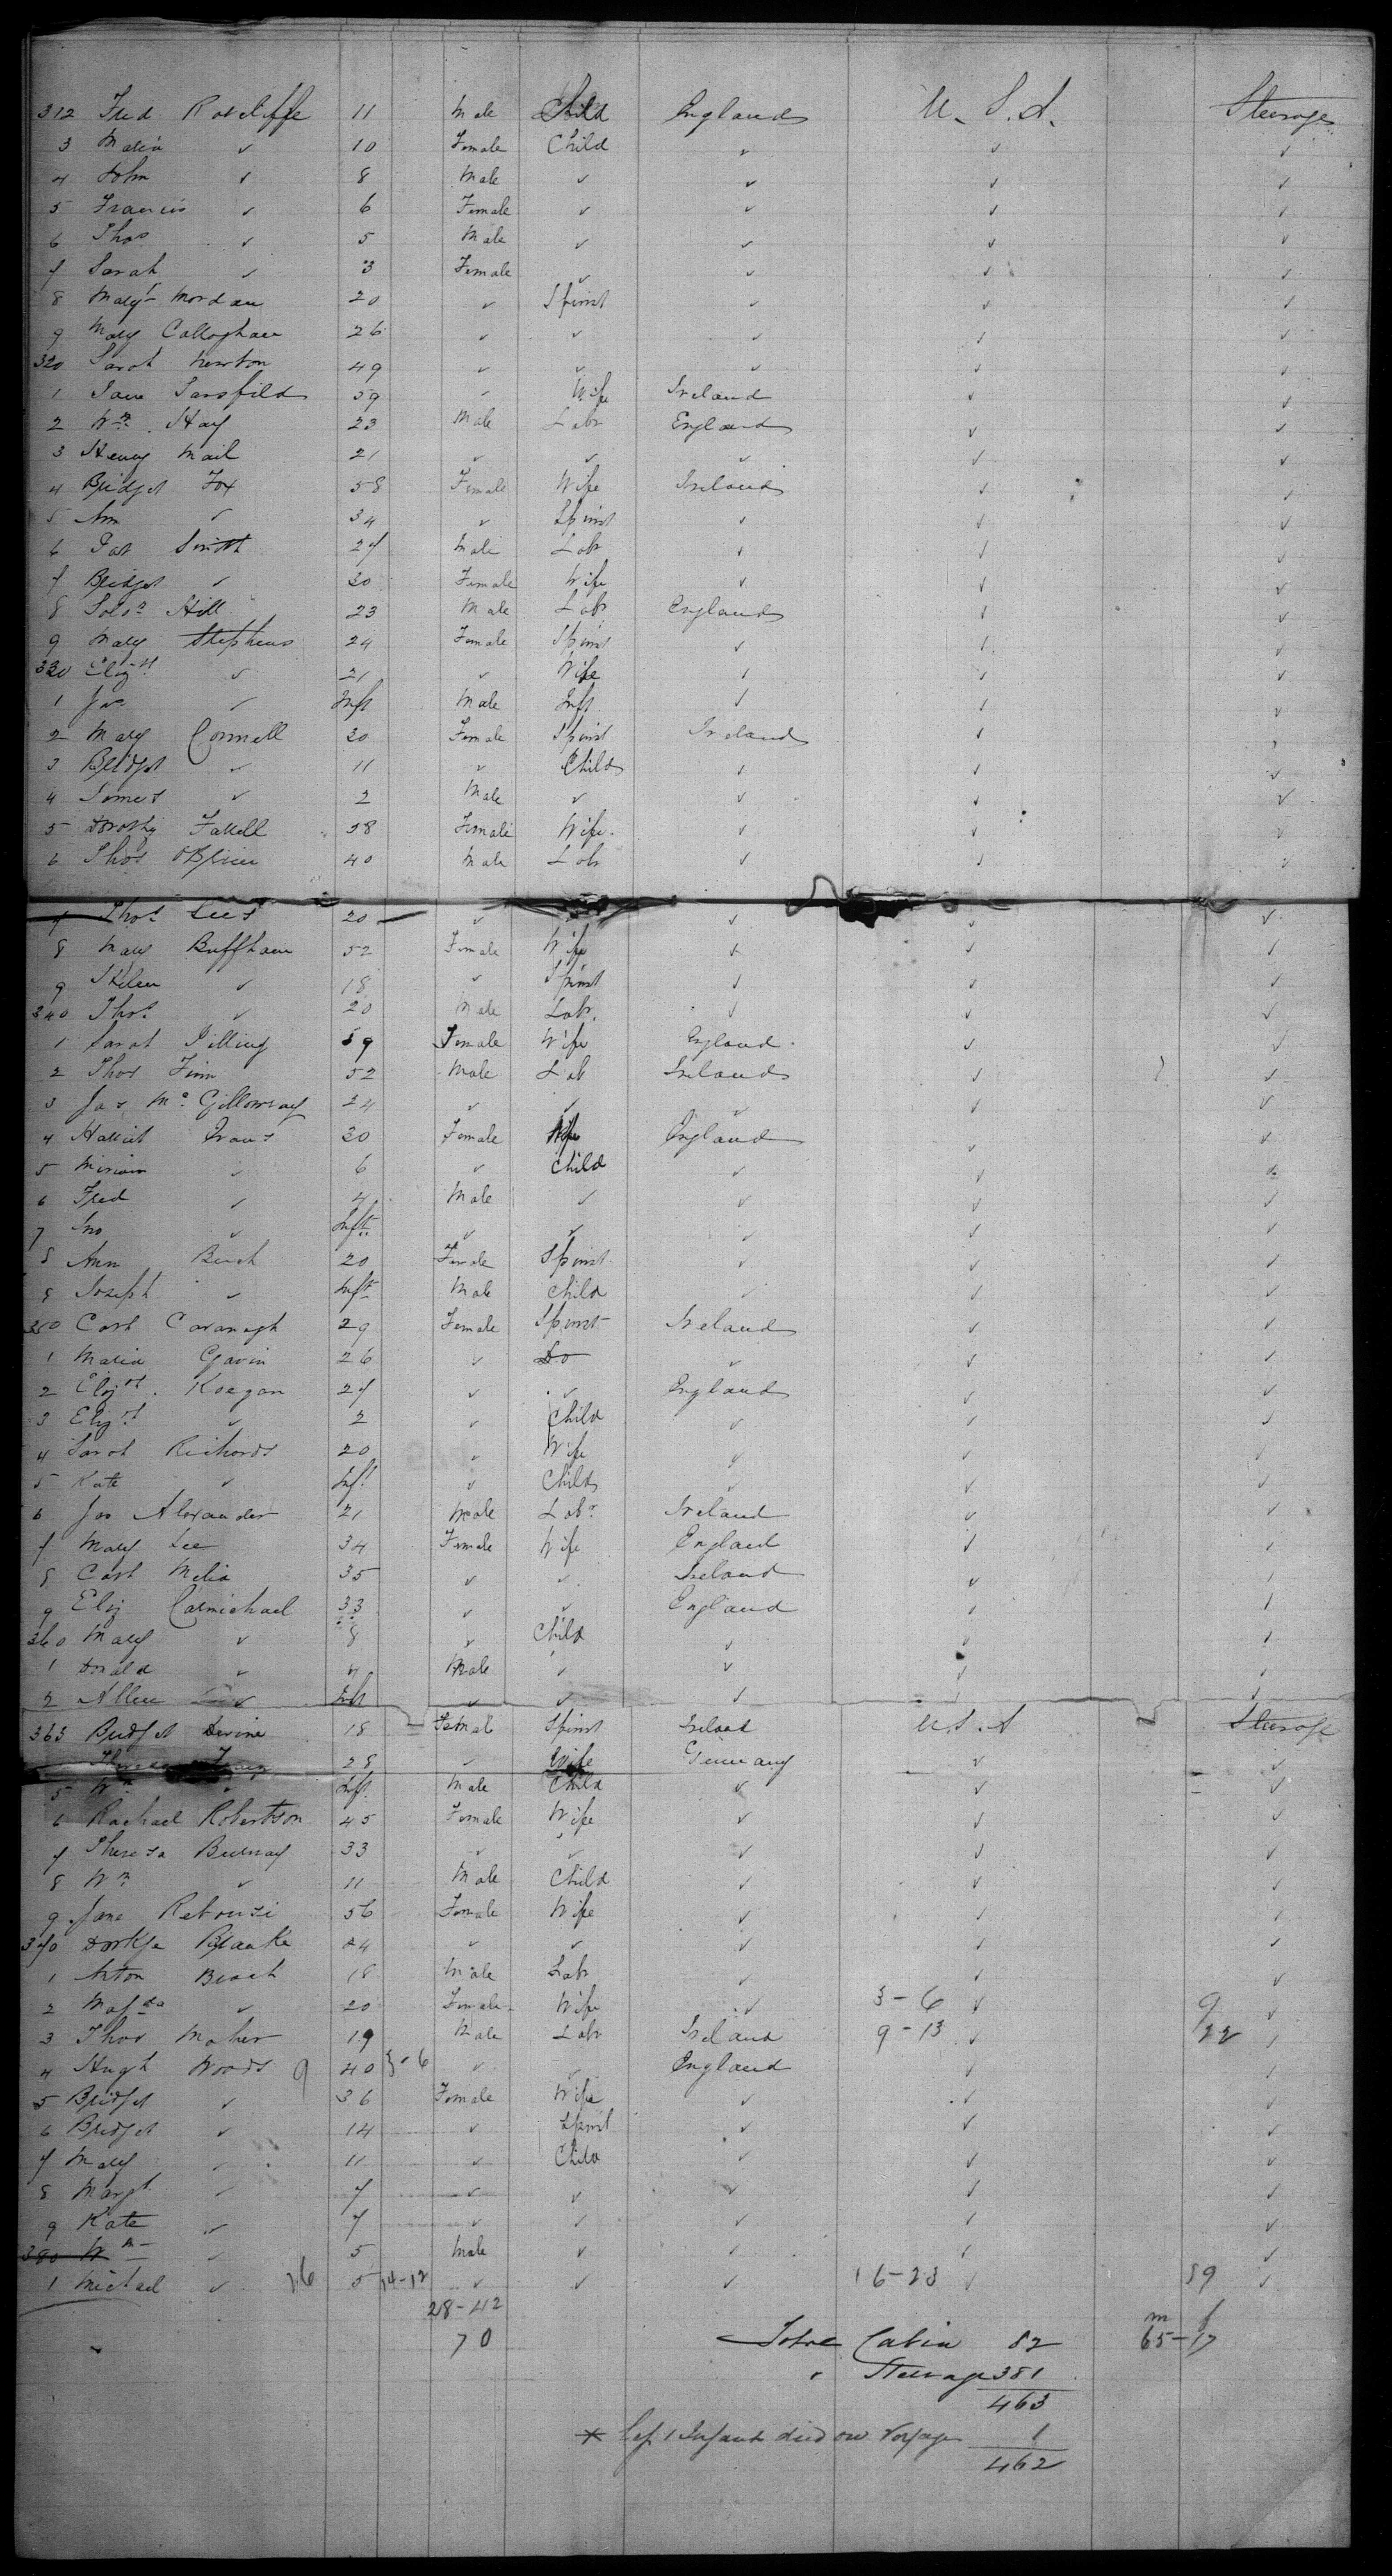 312 Fred Ratcliffe 11 Male Child England U.S.A. Steerage
3 Maria ✓ 10 Female Child ✓ ✓ ✓
4 John ✓ 8 Male ✓ ✓ ✓ ✓
5 Francis ✓ 6 Female ✓ ✓ ✓ ✓
6 Thos ✓ 5 Male ✓ ✓ ✓ ✓
7 Sarah ✓ 3 Female ✓ ✓ ✓ ✓
8 Mary 20 ✓ Spinst ✓ ✓ ✓
9 Mary Callaghan 26 ✓ ✓ ✓ ✓ ✓
320 Sarah Newton 49 ✓ ✓ ✓ ✓ ✓
1 Jane Sarsfield 59 ✓ Wife Ireland ✓ ✓
2 Wm Hay 23 Male Labr England ✓ ✓
3 Henry Mail 21 ✓ ✓ ✓ ✓ ✓
4 Bridget Fox 58 Female Wife Ireland ✓ ✓
5 Ann ✓ 34 ✓ Spinst ✓ ✓ ✓
6 Pat Smith 27 Male Labr ✓ ✓ ✓
7 Bridget ✓ 30 Female Wife ✓ ✓ ✓
8 Solon Hill 23 Male Labr England ✓ ✓
9 Mary Stephens 24 Female Spinst ✓ ✓ ✓
330 Elizth ✓ 21 ✓ Wife ✓ ✓ ✓
1 Jas ✓ Inft Male Inft ✓ ✓ ✓
2 Mary Connell 30 Female Spinst Ireland ✓ ✓
3 Bridget ✓ 11 ✓ Child ✓ ✓ ✓
4 James ✓ 2 Male ✓ ✓ ✓ ✓
5 Dorothy 58 Female Wife ✓ ✓ ✓
6 Thos O'Brien 40 Male Labr ✓ ✓ ✓
7 Thos Lees 20 ✓ ✓ ✓ ✓
8 Mary Buffham 52 Female Wife ✓ ✓ ✓
9 Helen ✓ 18 ✓ Spinst ✓ ✓ ✓
340 Thos ✓ 20 Male Labr ✓ ✓ ✓
1 Sarah Pilling 59 Female Wife England ✓ ✓
2 Thos Finn 52 Male Lab Ireland ✓ ✓
3 Jas Mc Gillowray 24 ✓ ✓ ✓ ✓ ✓
4 Harriet Evans 30 Female Wife England ✓ ✓
5 Miriam ✓ 6 ✓ Child ✓ ✓ ✓
6 Fred ✓ 4 Male ✓ ✓ ✓ ✓
7 Jno ✓ Inft ✓ ✓ ✓ ✓ ✓
8 Ann Birch 20 Female Spinst ✓ ✓ ✓
9 Joseph ✓ Inft Male Child ✓ ✓ ✓
350 Cath Cavanagh 29 Female Spinst Ireland ✓ ✓
1 Maria Gavin 26 ✓ Do ✓ ✓ ✓
2 Elizth Keegan 27 ✓ ✓ England ✓ ✓
3 Elizth ✓ 2 ✓ Child ✓ ✓ ✓
4 Sarah Richards 20 ✓ Wife ✓ ✓ ✓
5 Kate ✓ Inft ✓ Child ✓ ✓ ✓
6 Jas Alexander 21 Male Labr Ireland ✓ ✓
7 Mary Lee 34 Female Wife England ✓ ✓
8 Cath Melia 35 ✓ ✓ Ireland ✓ ✓
9 Eliz Carmichael 33 ✓ ✓ England ✓ ✓
360 Mary ✓ 8 ✓ Child ✓ ✓ ✓
1 Donald ✓ 4 Male ✓ ✓ ✓ ✓
2 Allen ✓ Inft ✓ ✓ ✓ ✓ ✓
363 Bridget Devine 18 Female Spinst Ireland U.S.A Steerage
28 ✓ Wife Germany ✓ ✓
5 Wm ✓ Inft Male Child ✓ ✓ ✓
6 Rachael Robertson 45 Female Wife ✓ ✓ ✓
7 Theresa 33 ✓ ✓ ✓ ✓ ✓
8 Wm ✓ 11 Male Child ✓ ✓ ✓
9 Jane 56 Female Wife ✓ ✓ ✓
370 24 ✓ ✓ ✓ ✓ ✓
1 Anton 18 Male Labr ✓ ✓ ✓
2 Magda ✓ 20 Female Wife ✓ 3-6 ✓ 9 ✓
3 Thos Maher 19 Male Labr Ireland 9-13 ✓ 22 ✓
4 Hugh Woods 9 40 3-6 ✓ ✓ England ✓ ✓
5 Bridget ✓ 36 Female Wife ✓ ✓ ✓
6 Bridget ✓ 14 ✓ Spinst ✓ ✓ ✓
7 Mary ✓ 11 ✓ Child ✓ ✓ ✓
8 Margt ✓ 7 ✓ ✓ ✓ ✓ ✓
9 Kate ✓ 7 ✓ ✓ ✓ ✓ ✓
380 Wm ✓ 5 Male ✓ ✓ ✓ ✓
1 Michael ✓ 26 5 14-12 ✓ ✓ ✓ 16-23 ✓ 39 ✓
28-42
70
Total Cabin 82 m f 65-17
" Steerage 381
463
* Less 1 Infant died on Voyage 1
462